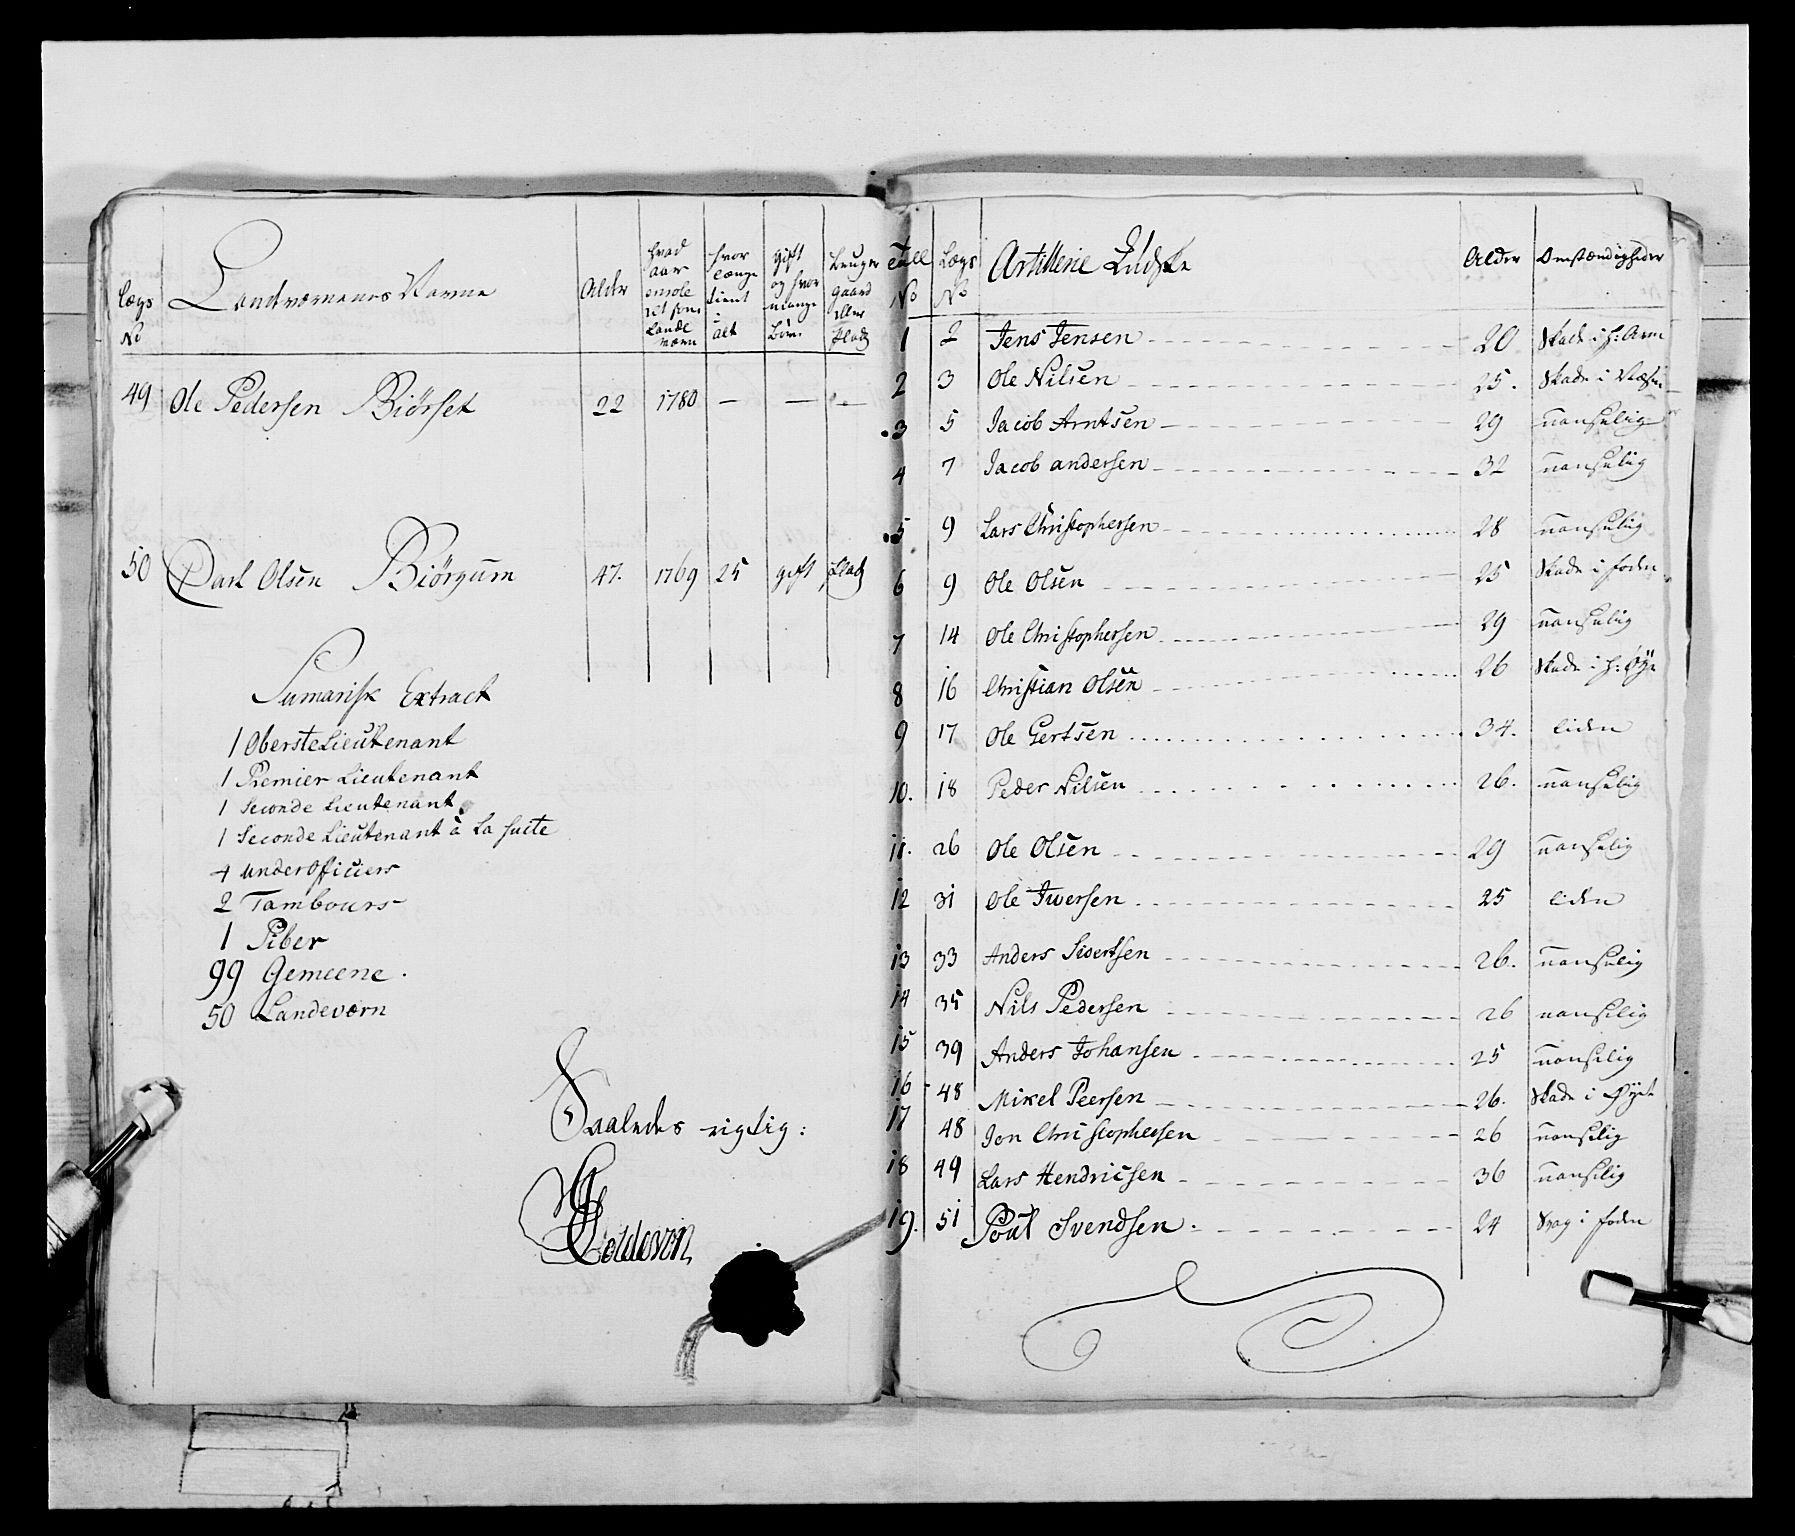 Lægs No | Landværnenes Navne | Alder | hvad aar enrole ret som Lande værn | hvor længe tient i alt | gift og hvor mange Børn | bruger gaard eller Plads
49 Ole Pedersen Biörset 22 1780 — — —
50 Carl Olsen Biörgum 47. 1769 25 gift Plads
Sumarisk Extract
1 ObersteLieutenant
1 Premier Lieutenant
1 Seconde Lieutenant
1 Seconde Lieutenant à La Suite
4 underofficiers
2 Tambours
1 Piber
99 Gemeene.
50 Landeværn
Saaledes rigtig:
Coldevin
Tall No | Lægs No | Artillerie | Alder | Omstændigheder
1 2 Jens Jensen 20 Skade i h: Arm
2 3 Ole Nilsen 25. Skade i Næsen
3 5 Jacob Arntsen 29 uanselig
4 7 Jacob andersen 32 uanselig
5 9 Lars Christophersen 28 uanselig
6 9 Ole Olsen 25 Skade i foden
7 14 Ole Christophersen 29 uanselig
8 16 Christian Olsen 26 Skade i h: Øye
9 17 Ole Gertsen 34. liden
10. 18 Peder Nilsen 26. uanselig
11. 26 Ole Olsen 29 uanselig
12 31 Ole Iwersen 25 liden
13 33 Anders Sivertsen 26. uanselig
14 35 Nils Pedersen 26 uanselig
15 39 Anders Johansen 25 uanselig
16 48 Mikel Peersen 26. Skade i Øyet
17 48 Jon Christophersen 26 uanselig
18 49 Lars Hendricsen 36 uanselig
19. 51 Poul Svendsen 24 Svag i foden